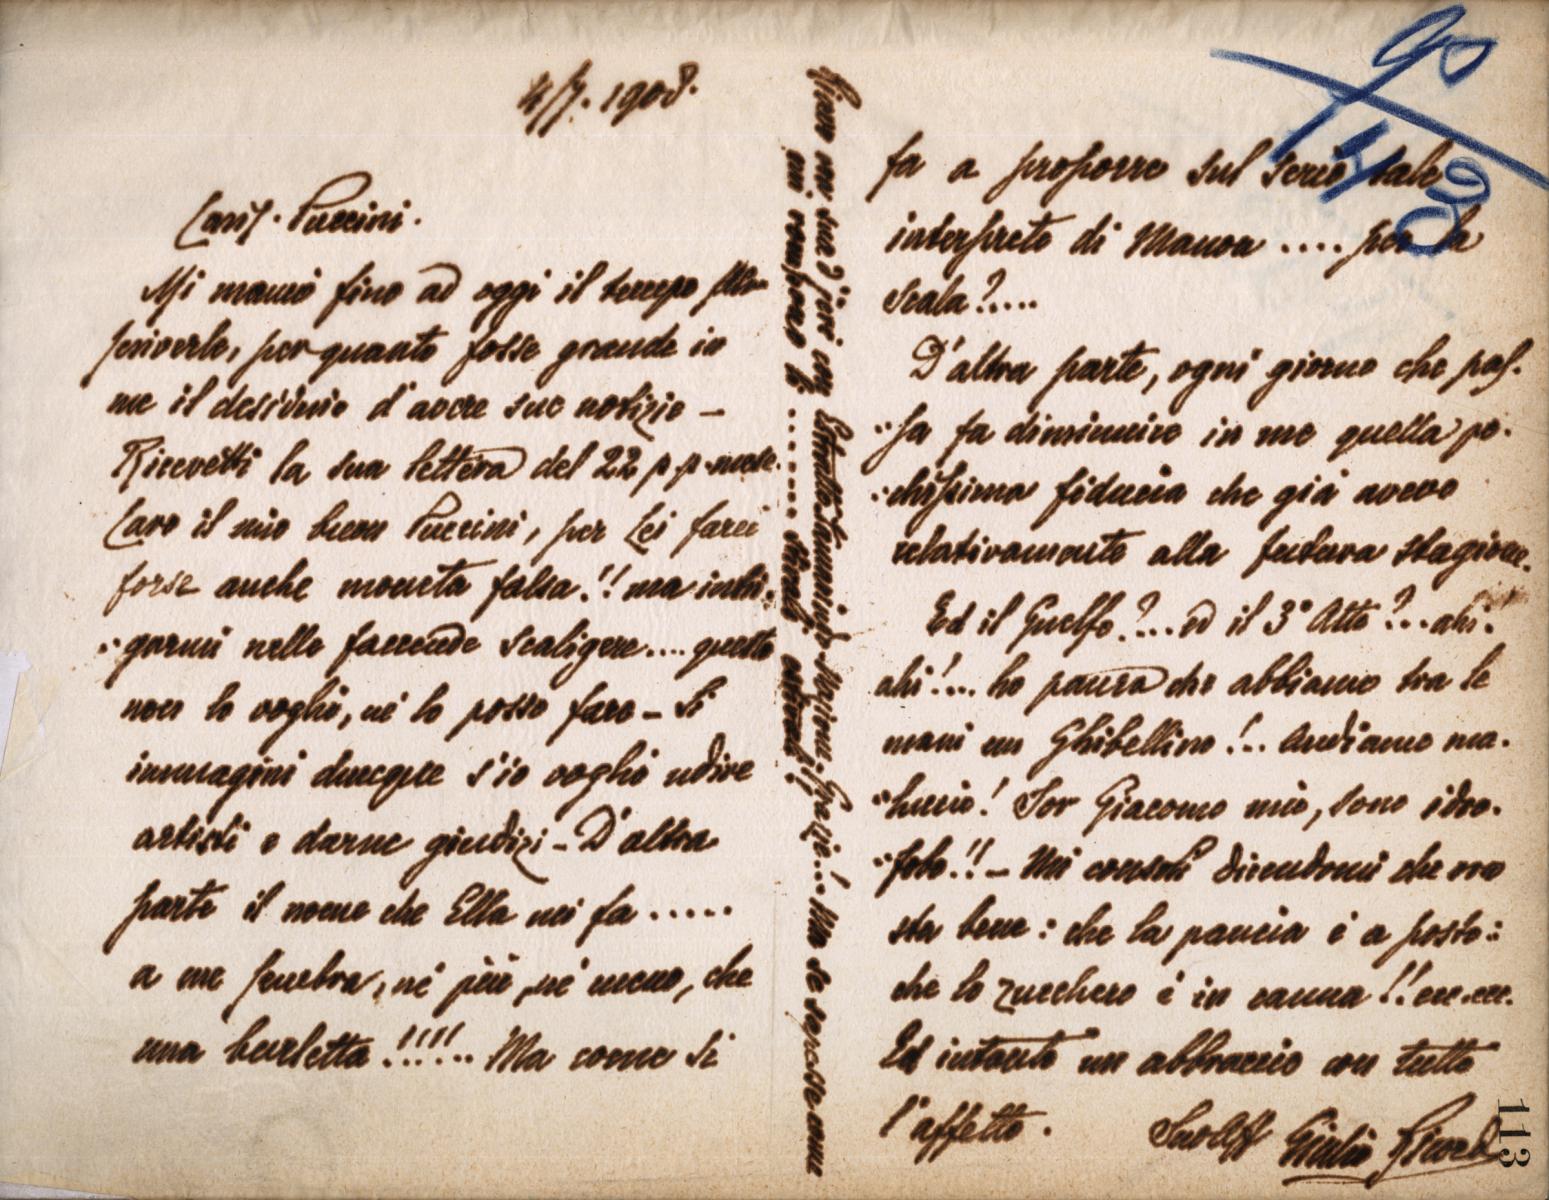 4/7. 1908.
Cariss. Puccini.
Mi mancò fino ad oggi il tempo per
scriverle, per quanto fosse grande in
me il desiderio d'avere sue notizie –
Ricevetti la sua lettera del 22 p.p. mese.
Caro il mio buon Puccini, per Lei farei
forse anche moneta falsa!! ma intri-
garmi nelle faccende scaligere.... questo
non lo voglio, nè lo posso fare – Si
immagini dunque s'io voglio udire
artisti e darne giudizi – D'altra
parte il nome che Ella mi fa .....
a me sembra, nè più, nè meno, che
una burletta!!!!!.. Ma come si
fa a proporre sul serio tale
interprete di Manon .... per la
Scala?....
D'altra parte, ogni giorno che pas-
sa fa diminuire in me quella po-
chissima fiducia che già avevo
relativamente alla futura stagione.
Ed il Guelfo?... ed il 3° Atto?... ahi!
ahi!... ho paura che abbiamo tra le
mani un Ghibellino!.. Andiamo ma-
luccio! Sor Giacomo mio, sono idro-
fobo!! – Mi consoli dicendomi che ora
sta bene: che la pancia è a posto:
che lo zucchero è in canna!! ecc. ecc.
Ed intanto un abbraccio con tutto
l'affetto. Suo aff Giulio Ricordi
Ricevo ora sua d'ieri con Estratto Stamuring stagione. Grazie!.. Ma se sapesse come
mi sembrano b....... strali, astrali!
90
143
113